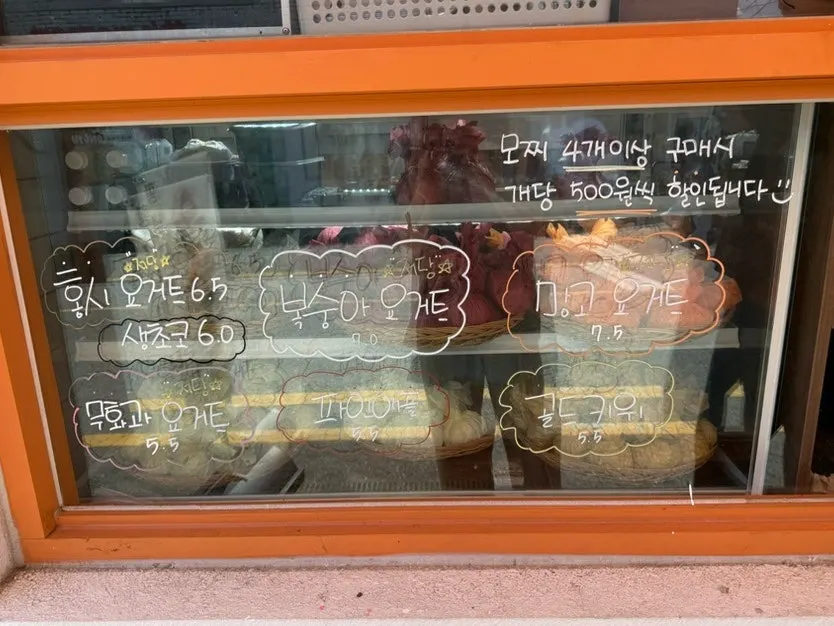 모찌 4개이상 구매시
개당 500원씩 할인됩니다
저당
홍시 요거트 6.5
생초코 6.0
저당
복숭아 요거트
7.0
망고 요거트
7.5
저당
무화과 요거트
5.5
파인애플
5.5
골드키위
5.5